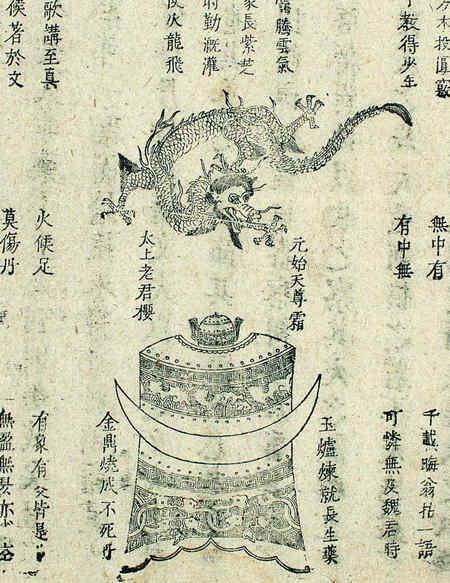 木投眞竅
教得少年
騰雲氣
家長紫芝
時勤溉灌
使火龍飛
歌講至真
候著於文
無中有
有中無
元始天尊霜
太上老君櫻
火候足
莫傷丹
千載晦翁拈一語
可憐無及魏君時
玉爐煉就長生藥
金鼎燒成不死丹
有象有爻皆是
無盈無